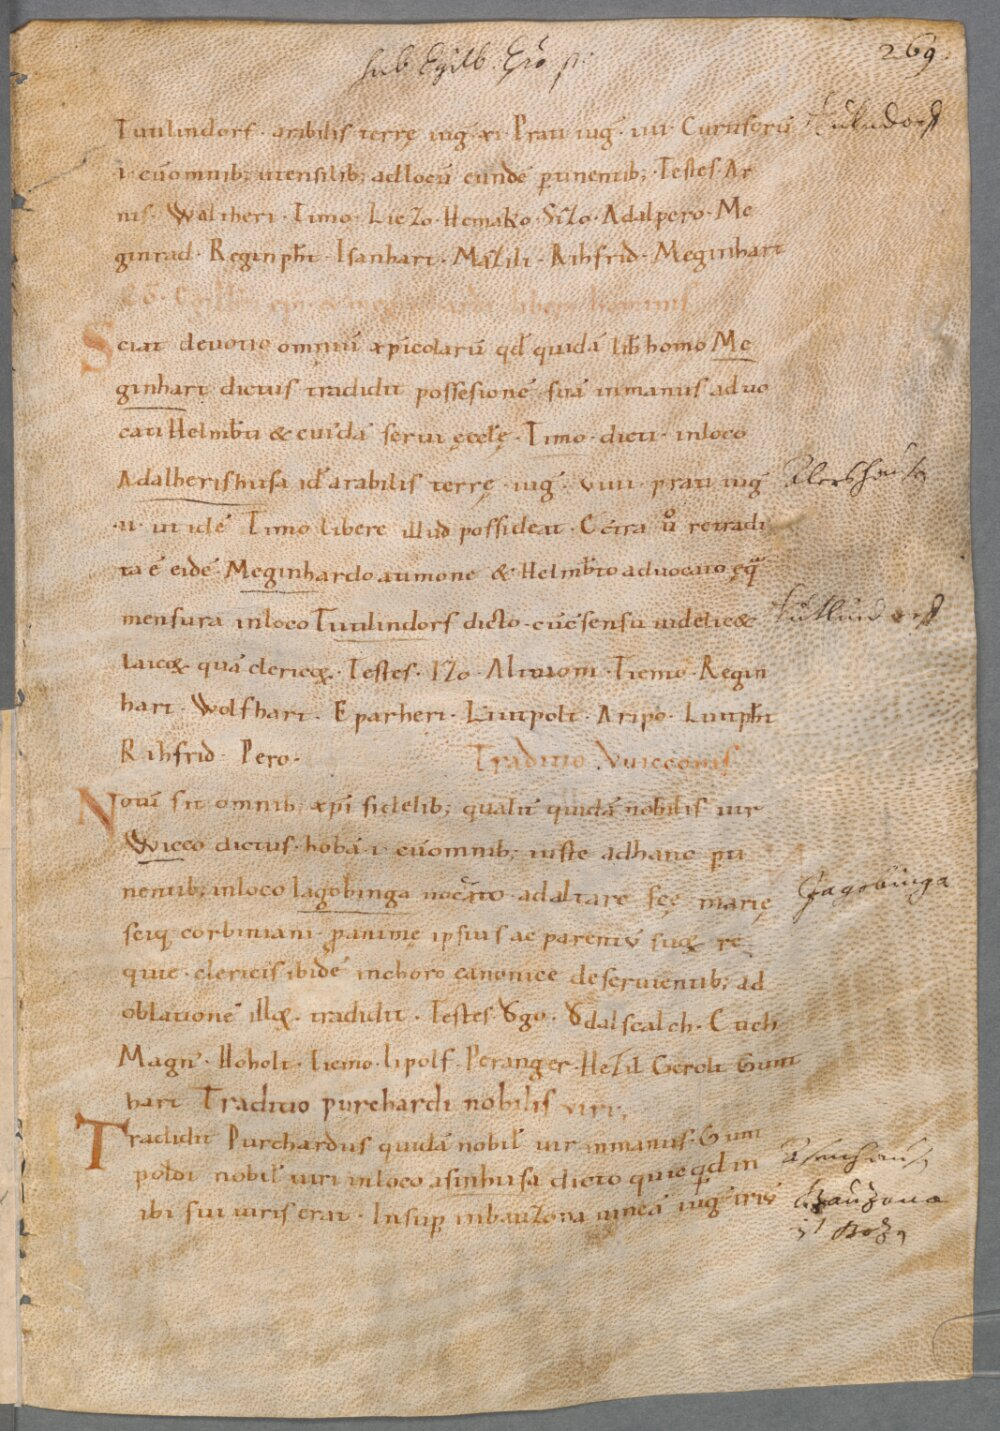 sub Egilb.
269.
Tutilindorf · arabilis terrę iug · xi · Prati iug · iiii · Curtiferū
Tutlndorf
i cū omnib; utensilib; ad locū eundē ptinentib; · Testes · Ar
nis · Waltheri · Timo · Liezo · Hemako · Sizo · Adalpero · Me
ginrad · Reginpht · Isanhart · Mazili · Rihfrid · Meginhart
Sciat devotio omniū xpicolarū qd quidā lib homo Me
ginhart dictus tradidit possesionē suā in manus advo
cati Helmbti & cuidā servi ęcclę · Timo · dicti · in loco
Adalherishusa id arabilis terrę · iug · viiii · prati iug
Alershausn
· ii · ut idē Timo libere illud possideat · Cetra ů retradi
ta ē eidē Meginhardo a timone & Helmbto advocato ęq
mensura in loco Tutilindorf dicto · cū csensu videlic&
Tutlindorf
laicoꝝ quā clericoꝝ · Testes · Izo · Altmom · Tiemo · Regin
hart · Wolfhart · Eparheri · Liutpolt · Aripo · Liutpht
Rihfrid · Pero ·
Traditio Vuicconis
Notū sit omnib; xpi fidelib; qualit quidā nobilis vir
Wicco dictus · hobā · i · cū omnib; iuste ad hanc pti
nentib; in loco Iagobinga nocato ad altare scę marię
Jagobinga
sciq corbiniani · p anime ipsius ac parentū suoꝝ re
quie · clericis ibidē in choro canonice deservientib; ad
oblationē illoꝝ · tradidit · Testes Ogo · Odalscalch · Cuch
Magn · Hoholt · Tiemo · lipolf · Peranger · Hezil Gerolt Gunt
hart Traditio purchardi nobilis viri,
Tradidit Purchardus quidā nobil vir in manus · Gum
poldi nobil viri in loco asinhusa dicto quicqd in
Asenhausn
ibi sui iuris erat · Insup in bauzona vineā iug triū
Bauzona
ist Bozn